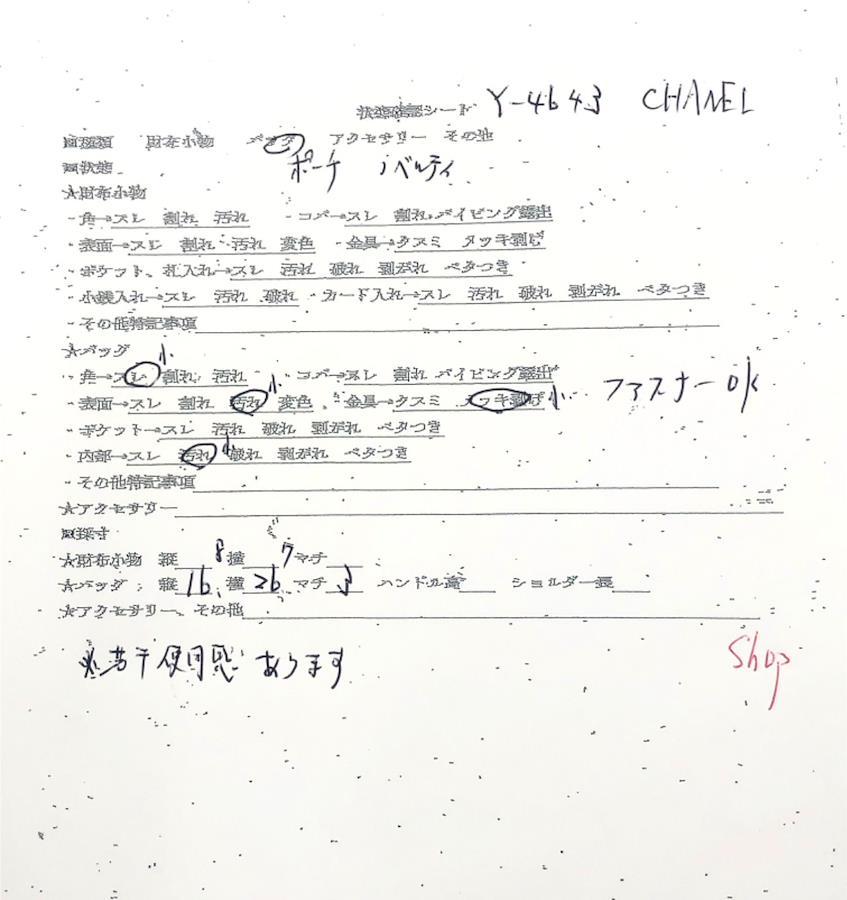 状態確認シート Y-4643 CHANEL
■種類 財布小物 バッグ アクセサリー その他
■状態 ポーチ ノベルティ
★財布小物
・角→スレ 割れ 汚れ ・コバ→スレ 割れ パイピング露出
・表面→スレ 割れ 汚れ 変色 ・金具→クスミ メッキ剥げ
・ポケット、札入れ→スレ 汚れ 破れ 剥がれ ベタつき
・小銭入れ→スレ 汚れ 破れ ・カード入れ→スレ 汚れ 破れ 剥がれ ベタつき
・その他特記事項
★バッグ 小
・角→スレ 割れ 汚れ 小 ・コバ→スレ 割れ パイピング露出
・表面→スレ 割れ 汚れ 変色 ・金具→クスミ メッキ剥げ 小 ファスナーOK
・ポケット→スレ 汚れ 破れ 剥がれ ベタつき
・内部→スレ 汚れ 小 破れ 剥がれ ベタつき
・その他特記事項
★アクセサリー
■採寸
★財布小物 縦 8 横 7 マチ
★バッグ 縦 16 横 26 マチ 3 ハンドル高 ショルダー長
★アクセサリー、その他
※若干使用感あります Shop